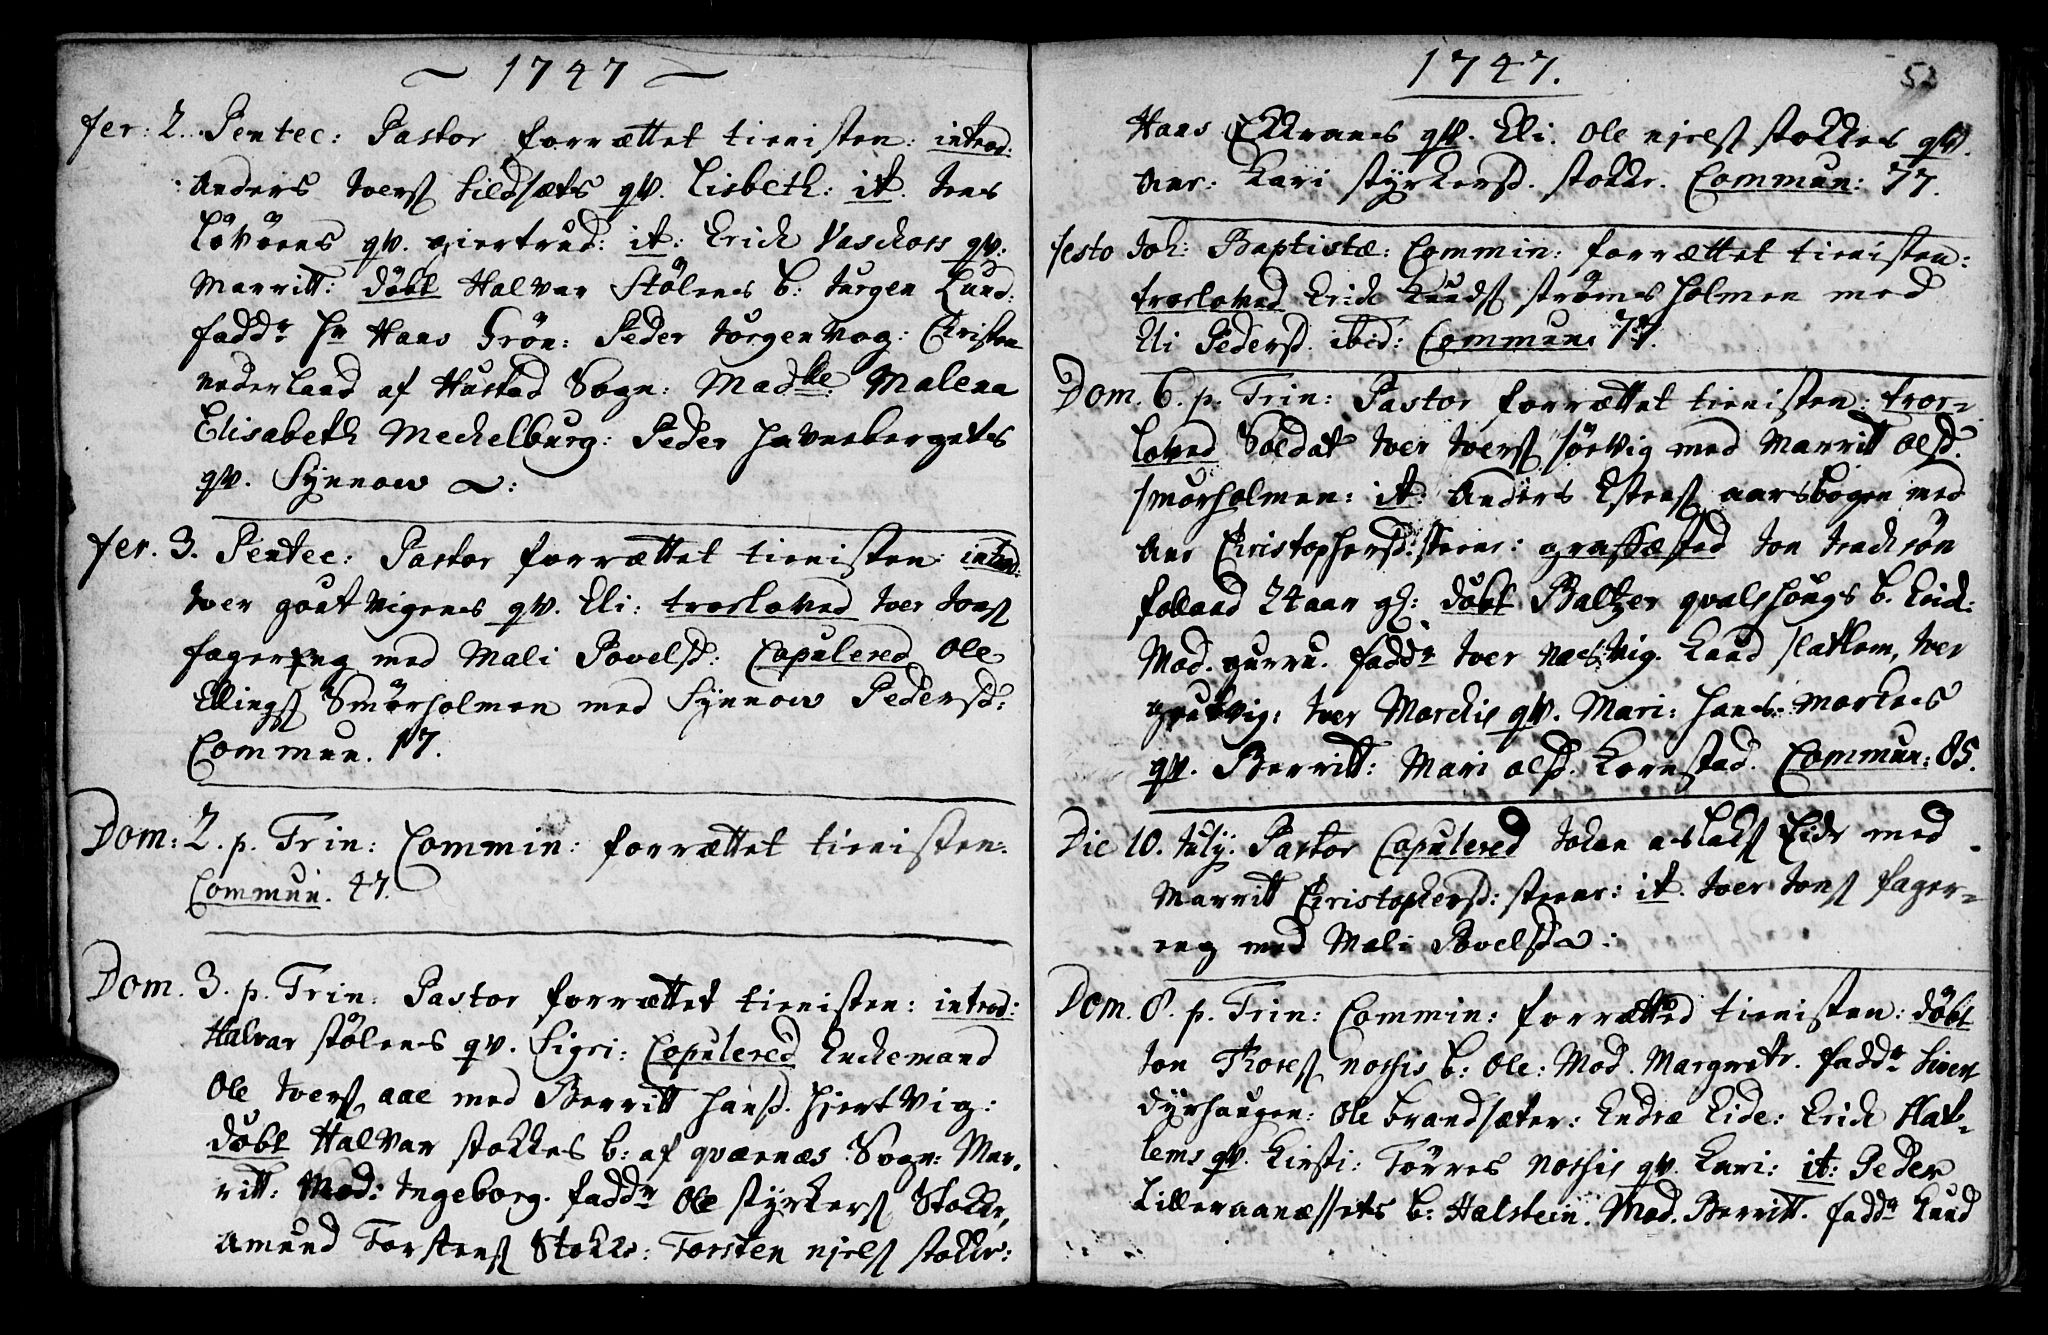 ~ 1747 ~
fer: 2. Pentec: Pastor forrættet tienisten: introd:
Anders Ivers Sildsæts qv. Lisbeth: it. Jens
Løvøens qv. giertrud: it: Erich Vaschoss qv:
Marritt: døbt Halvar Stölens b: Jurgen Lund:
fadd: Hr Hans Grön: Peder Jörgenvog: Christen
nederland af Hustad Sogn: Madlle Malena
Elisabeth Mechelburg: Peder Havnebergets
qv. Synnow ~:
fer. 3. Pentec: Pastor forrættet tienisten: introd:
Iver goutvigens qv. Eli: troloved Iver Jons
fagereng med Mali Povelsd: Copulered Ole
Ellings Smörholmen med Synnow Pedersd:
Commun. 17.
Dom: 2. p. Trin: Commin: forrættet tienisten:
Commun. 47.
Dom. 3. p. Trin: Pastor forrættet tienisten: introd:
Halvar stölens qv. Sigri: Copulered Enckemand
Ole Ivers aae med Berritt Hansd. Hjertvig:
döbt Halvar stokkes b: af qværnæs Sogn: Mar,
ritt: Mod: Ingeborg. fadd: Ole styrkers Stokke,
Amund Torstens Stokke: Torsten njels stokke:
1747.
52
Hans Ekkranes qv. Eli. Ole njels stokkes qv.
Ane: Kari styrkersd. stokke. Commun: 77.
festo Joh: Baptistæ: Commin: forrættet tienisten:
troeloved Erich Knuds strömsholmen med
Eli Pedersd. ibid: Commun: 77.
Dom. 6. p. Trin: Pastor forrættet tienisten: troe-
loved Soldat Iver Ivers sörvig med Marritt Olsd.
smörholmen: it: Anders Estens aarsbogen med
Ane Christophersd: steene: græssæsted Jon
folland 24 aar gl: döbt Baltzer qvalshougs b. Erich:
Mod. gurru. fadd: Iver næsvig. Knud slatlem, Iver
goutvig: Iver Morchis qv. Mari: Hans Morknes
qv. Berritt: Mari Olsd. Kornstad. Commun: 85.
Die 10. July: Pastor Copulered Johan aslaks Eide med
Marritt Christophersd: steene: it. Iver Jons fager-
eng med Mali Povelsd ~:
Dom. 8. p. Trin: Commin: forrætted tienisten: döbt
Jon Thores nossis b: Ole: Mod. Margrete. fadd: Siver
dyrhaugen: Ole brandsæter: Endræ Eide: Erich Slat-
lems qv. Kirsti: Törres nossis qv. Kari: it: Peder
Lilleraanæssets b: Halstein. Mod. Berritt. fadd: Knud